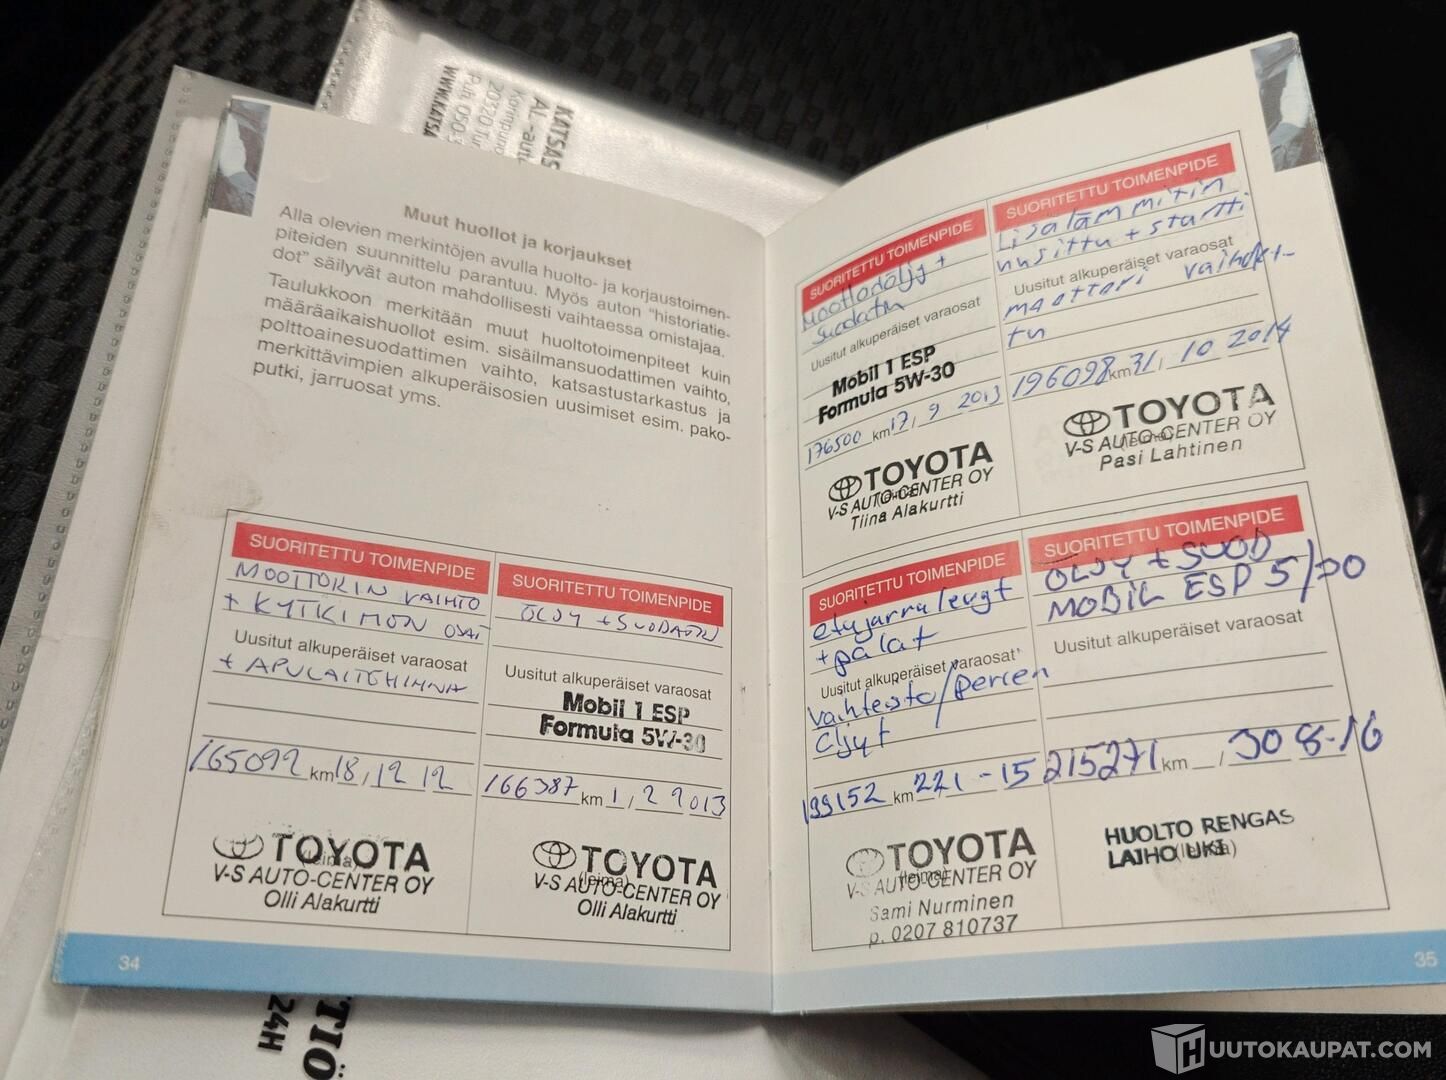 KATSAS
AL-auto
Korinpuno
20320 Tur
Puh 050-
WWW.KATSA
Muut huollot ja korjaukset
Alla olevien merkintöjen avulla huolto- ja korjaustoimen-
piteiden suunnittelu parantuu. Myös auton "historiatie-
dot" säilyvät auton mahdollisesti vaihtaessa omistajaa.
Taulukkoon merkitään muut huoltotoimenpiteet kuin
määräaikaishuollot esim. sisäilmansuodattimen vaihto,
polttoainesuodattimen vaihto, katsastustarkastus ja
merkittävimpien alkuperäisosien uusimiset esim. pako-
putki, jarruosat yms.
SUORITETTU TOIMENPIDE
MOOTTORIN VAIHTO
+ KYTKIMON OSAT
Uusitut alkuperäiset varaosat
+ APULAITEHIHNA
165092 km 18, 12 12
(leima)
TOYOTA
V-S AUTO-CENTER OY
Olli Alakurtti
SUORITETTU TOIMENPIDE
ÖLJY + SUODATIN
Uusitut alkuperäiset varaosat
Mobil 1 ESP
Formula 5W-30
166387 km 1, 2 2013
(leima)
TOYOTA
V-S AUTO-CENTER OY
Olli Alakurtti
34
SUORITETTU TOIMENPIDE
Moottoöljy +
suodatin
Uusitut alkuperäiset varaosat
Mobil 1 ESP
Formula 5W-30
176500 km 17, 9 2013
(leima)
TOYOTA
V-S AUTO-CENTER OY
Tiina Alakurtti
SUORITETTU TOIMENPIDE
Lisälämmitin
uusittu + startti
Uusitut alkuperäiset varaosat
moottori vaihdet-
tu
196098 km 31, 10 2014
(leima)
TOYOTA
V-S AUTO-CENTER OY
Pasi Lahtinen
SUORITETTU TOIMENPIDE
etujarrulevyt
+ palat
Uusitut alkuperäiset varaosat
vaihteisto/peręn
öljyt
199152 km 22,1 -15
(leima)
TOYOTA
V-S AUTO-CENTER OY
Sami Nurminen
p. 0207 810737
SUORITETTU TOIMENPIDE
ÖLJY + SUOD
MOBIL ESP 5/30
Uusitut alkuperäiset varaosat
215271 km , 30 8-16
(leima)
HUOLTO RENGAS
LAIHO UKI
35
TIÖ
24H
HUUTOKAUPAT.COM